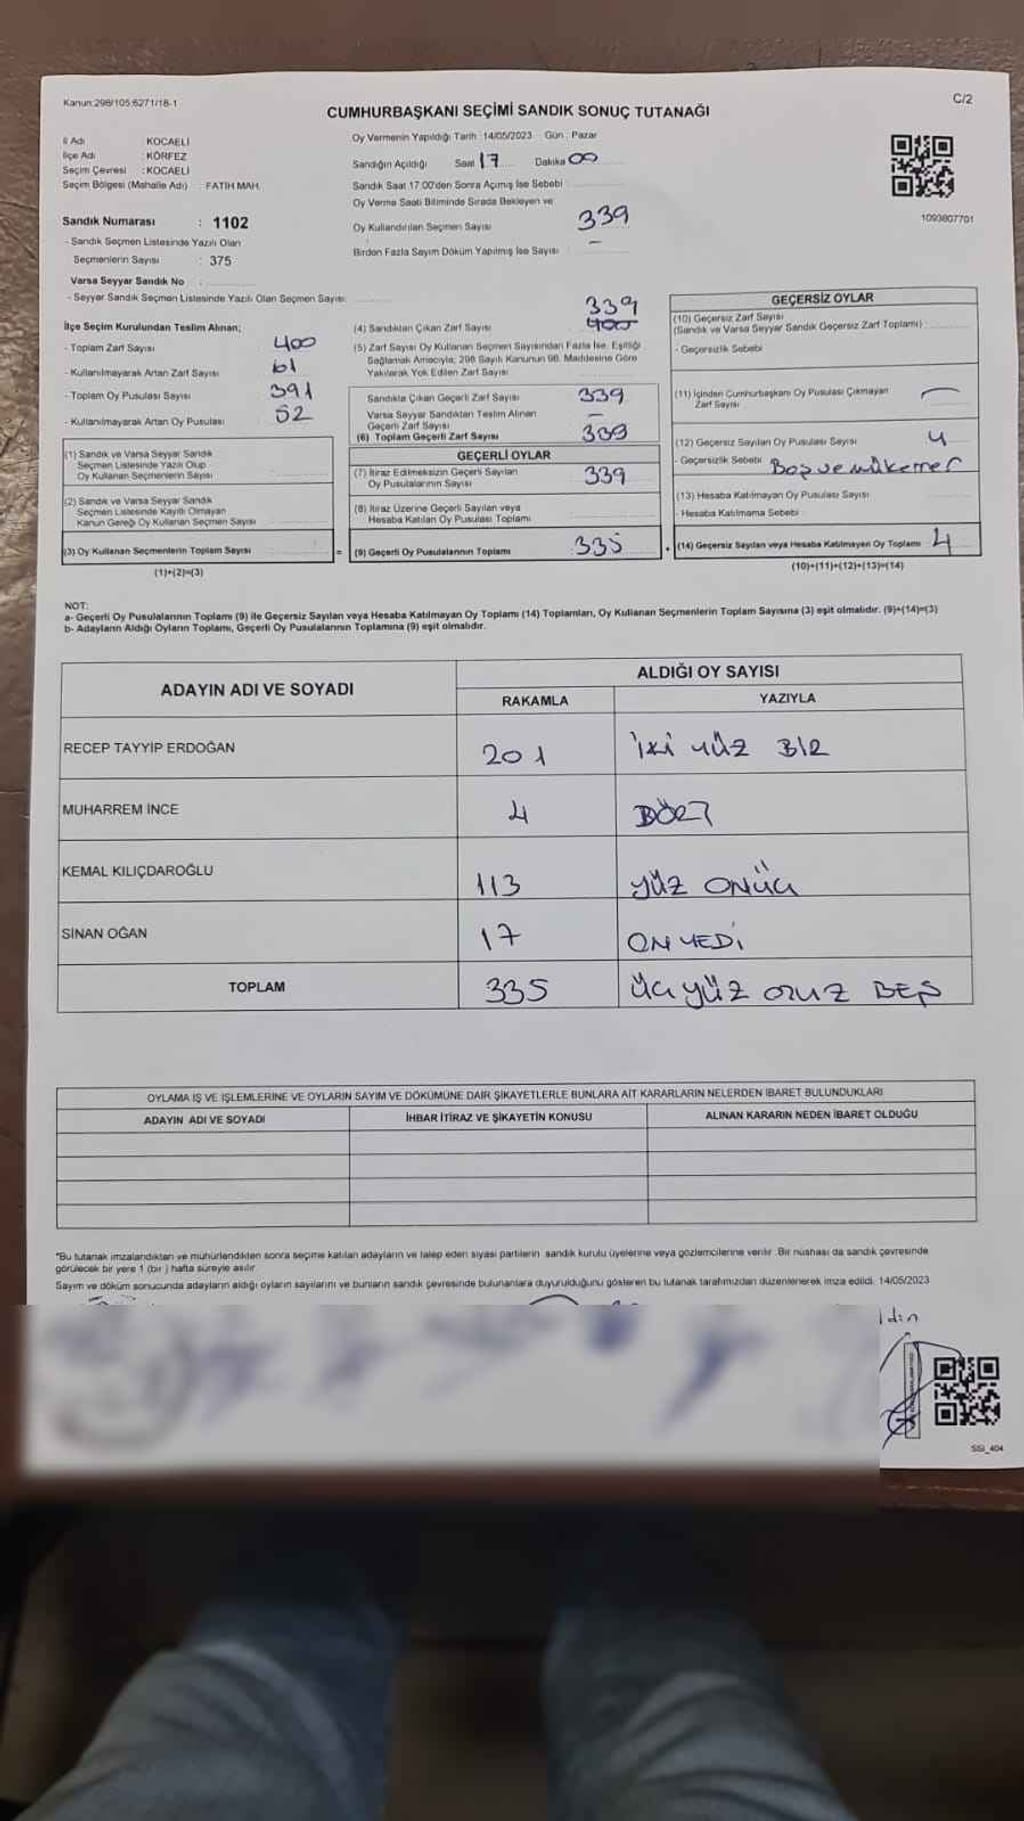 Kanun:298/105;6271/18-1
C/2
CUMHURBAŞKANI SEÇİMİ SANDIK SONUÇ TUTANAĞI
İl Adı KOCAELİ
İlçe Adı : KÖRFEZ
Seçim Çevresi : KOCAELİ
Seçim Bölgesi (Mahalle Adı) FATİH MAH.
Sandık Numarası : 1102
- Sandık Seçmen Listesinde Yazılı Olan
Seçmenlerin Sayısı : 375
Varsa Seyyar Sandık No
- Seyyar Sandık Seçmen Listesinde Yazılı Olan Seçmen Sayısı:
Oy Vermenin Yapıldığı Tarih :14/05/2023 Gün : Pazar
Sandığın Açıldığı Saat 17 Dakika 00
Sandık Saat 17:00'den Sonra Açımış İse Sebebi
Oy Verme Saati Bitiminde Sırada Bekleyen ve
Oy Kullandırılan Seçmen Sayısı 339
Birden Fazla Sayım Döküm Yapılmış İse Sayısı –
1093807701
İlçe Seçim Kurulundan Teslim Alınan;
- Toplam Zarf Sayısı 400
- Kullanılmayarak Artan Zarf Sayısı 61
- Toplam Oy Pusulası Sayısı 391
- Kullanılmayarak Artan Oy Pusulası 52
(1) Sandık ve Varsa Seyyar Sandık
Seçmen Listesinde Yazılı Olup
Oy Kullanan Seçmenlerin Sayısı
(2) Sandık ve Varsa Seyyar Sandık
Seçmen Listesinde Kayıtlı Olmayan
Kanun Gereği Oy Kullanan Seçmen Sayısı
(3) Oy Kullanan Seçmenlerin Toplam Sayısı
(1)+(2)=(3)
339
(4) Sandıktan Çıkan Zarf Sayısı 400
(5) Zarf Sayısı Oy Kullanan Seçmen Sayısından Fazla İse, Eşitliği
Sağlamak Amacıyla; 298 Sayılı Kanunun 98. Maddesine Göre
Yakılarak Yok Edilen Zarf Sayısı
Sandıkta Çıkan Geçerli Zarf Sayısı 339
Varsa Seyyar Sandıktan Teslim Alınan
Geçerli Zarf Sayısı –
(6) Toplam Geçerli Zarf Sayısı 339
GEÇERLİ OYLAR
(7) İtiraz Edilmeksizin Geçerli Sayılan
Oy Pusulalarının Sayısı 339
(8) İtiraz Üzerine Geçerli Sayılan veya
Hesaba Katılan Oy Pusulası Toplamı
= (9) Geçerli Oy Pusulalarının Toplamı 335
GEÇERSİZ OYLAR
(10) Geçersiz Zarf Sayısı
(Sandık ve Varsa Seyyar Sandık Geçersiz Zarf Toplamı) :
- Geçersizlik Sebebi
(11) İçinden Cumhurbaşkanı Oy Pusulası Çıkmayan
Zarf Sayısı –
(12) Geçersiz Sayılan Oy Pusulası Sayısı 4
- Geçersizlik Sebebi Boş ve mükerrer
(13) Hesaba Katılmayan Oy Pusulası Sayısı
- Hesaba Katılmama Sebebi
+ (14) Geçersiz Sayılan veya Hesaba Katılmayan Oy Toplamı 4
(10)+(11)+(12)+(13)=(14)
NOT:
a- Geçerli Oy Pusulalarının Toplamı (9) ile Geçersiz Sayılan veya Hesaba Katılmayan Oy Toplamı (14) Toplamları, Oy Kullanan Seçmenlerin Toplam Sayısına (3) eşit olmalıdır. (9)+(14)=(3)
b- Adayların Aldığı Oyların Toplamı, Geçerli Oy Pusulalarının Toplamına (9) eşit olmalıdır.
ADAYIN ADI VE SOYADI
ALDIĞI OY SAYISI
RAKAMLA YAZIYLA
RECEP TAYYİP ERDOĞAN 201 İKİ YÜZ BİR
MUHARREM İNCE 4 DÖRT
KEMAL KILIÇDAROĞLU 113 YÜZ ONÜÇ
SİNAN OĞAN 17 ON YEDİ
TOPLAM 335 ÜÇ YÜZ OTUZ BEŞ
OYLAMA İŞ VE İŞLEMLERİNE VE OYLARIN SAYIM VE DÖKÜMÜNE DAİR ŞİKAYETLERLE BUNLARA AİT KARARLARIN NELERDEN İBARET BULUNDUKLARI
ADAYIN ADI VE SOYADI İHBAR İTİRAZ VE ŞİKAYETİN KONUSU ALINAN KARARIN NEDEN İBARET OLDUĞU
"Bu tutanak imzalandıktan ve mühürlendikten sonra seçime katılan adayların ve talep eden siyasi partilerin sandık kurulu üyelerine veya gözlemcilerine verilir. Bir nüshası da sandık çevresinde
görülecek bir yere 1 (bir) hafta süreyle asılır
Sayım ve döküm sonucunda adayların aldığı oyların sayılarını ve bunların sandık çevresinde bulunanlara duyurulduğunu gösteren bu tutanak tarafımızdan düzenlenerek imza edildi. 14/05/2023